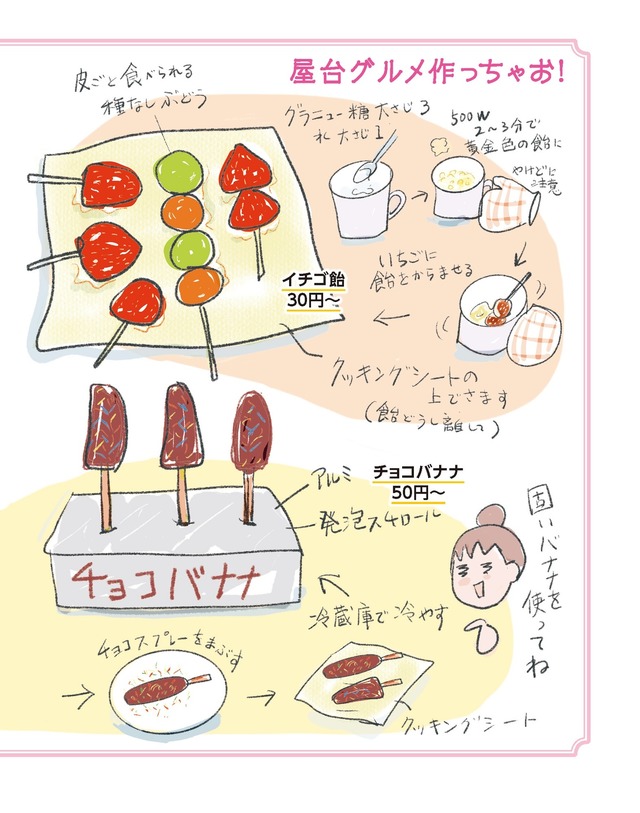 屋台グルメ作っちゃお!
皮ごと食べられる
種なしぶどう
グラニュー糖 大さじ3
水 大さじ1
500W
2〜3分で
黄金色の飴に
やけどに
注意
いちごに
飴をからませる
イチゴ飴
30円〜
クッキングシートの
上でさます
(飴どうし離して)
チョコバナナ
50円〜
アルミ
発泡スチロール
チョコバナナ
固いバナナを
使ってね
冷蔵庫で冷やす
チョコスプレーをまぶす
クッキングシート